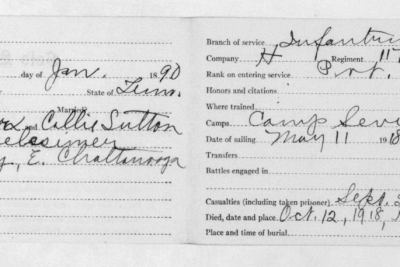 day of Jan. 1890
State of Tenn.
Married?
and Callie Sutton
E. Chattanooga
Branch of service Infantry
Company H Regiment 11
Rank on entering service Pvt.
Honors and citations
Where trained
Camps Camp Sevi
Date of sailing May 11 1918
Transfers
Battles engaged in
Casualties (including taken prisoner) Sept.
Died, date and place Oct. 12, 1918,
Place and time of burial